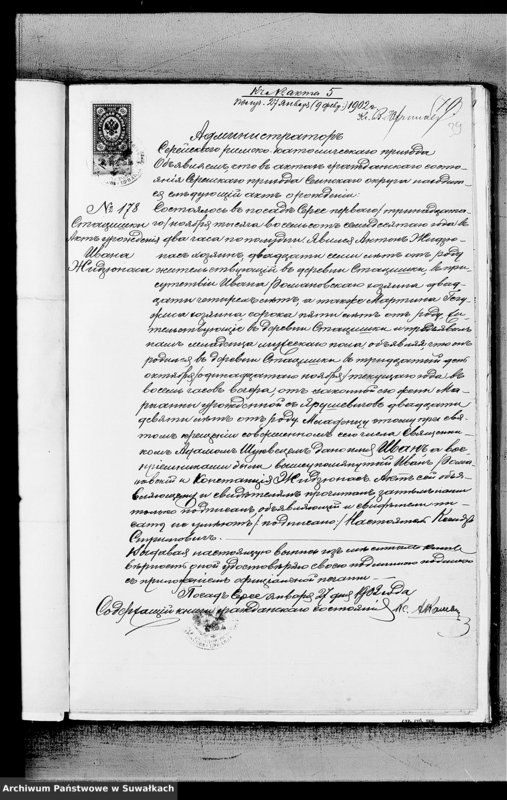 Къ № акта 5
Получ. 27 Января (9 февр.) 1902 г.
Администраторъ
Серейскаго римско-католическаго прихода
Объявляетъ что въ актахъ гражданскаго состо-
янія Серейскаго прихода Сейнскаго округа находит-
ся слѣдующій актъ о рожденіи
№ 178
Стацишки
Актъ урожденія
Ивана
Состоялось въ посадѣ Серее перваго/тринадцата-
го/ноября тысяча восемьсотъ семидесятаго года въ
два часа пополудни. Явился Антонъ
хозяинъ двадцати семи лѣтъ отъ роду
жительствующій въ деревни Стацишки, въ при-
сутствіи Ивана Романовскаго хозяина двад-
цати четырехъ лѣтъ, а также Мартина
хозяина сорока пяти лѣтъ отъ роду, жи-
тельствующихъ въ деревни Стацишки и предъявилъ
намъ младенца мужескаго пола объявляя, что онъ
родился въ деревни Стацишки въ тридцатый день
октября/одинадцатаго ноября/текущаго года въ
восемь часовъ вечера, отъ законной его жены Ма-
рьянны урожденной съ Ярушевичовъ двадцати
девяти лѣтъ отъ роду. Младенцу этому при свя-
томъ крещеніи совершенномъ сего числа Священни-
комъ Адамомъ дано имя Иванъ, а вос-
пріемниками были вышеупомянутый Иванъ Рома-
новскій и Констанція. Актъ сей объ-
являющему и свидѣтелямъ прочитанъ, затѣмъ нами
только подписанъ, объявляющій и свидѣтели пи-
сать не умѣютъ/подписано/Настоятель Ксендзъ
Выдавая настоящую выпись изъ
вѣрность оной удостовѣряю своею подписью
съ приложеніемъ офиціальной печати
Посадъ Серее января 27 дня 1902 года
Содержащій книги гражданскаго состоянія Кс.
Archiwum Państwowe w Suwałkach